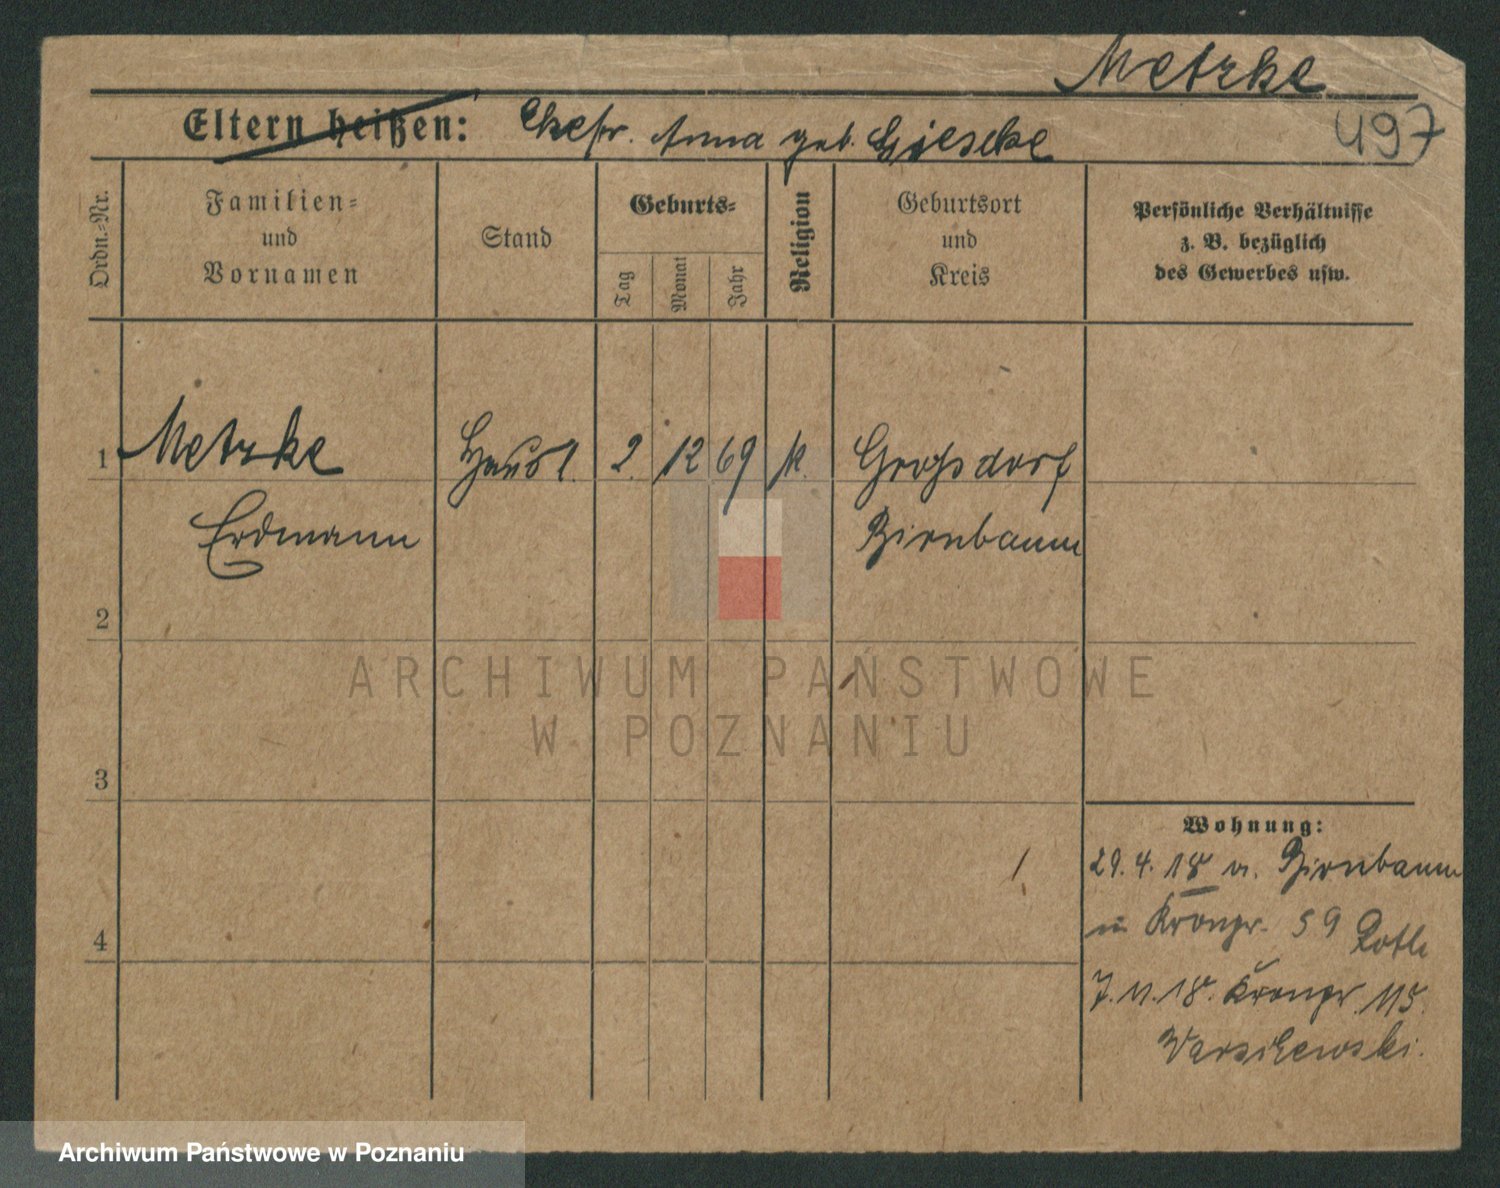 Metzke
Eltern heißen: Ehefr. Anna geb. Gieseke
497
Ordn.-Nr.
Familien-
und
Vornamen
Stand
Geburts-
Tag
Monat
Jahr
Religion
Geburtsort
und
Kreis
Persönliche Verhältnisse
z. B. bezüglich
des Gewerbes usw.
1 Metzke 2. 12 69 k. Großdorf
Erdmann Birnbaum
2
3
4
Wohnung:
29. 4. 18 v. Birnbaum
n Kronpr. 59
7. 11. 18. Kronpr. 115.
ARCHIWUM PAŃSTWOWE
W POZNANIU
Archiwum Państwowe w Poznaniu